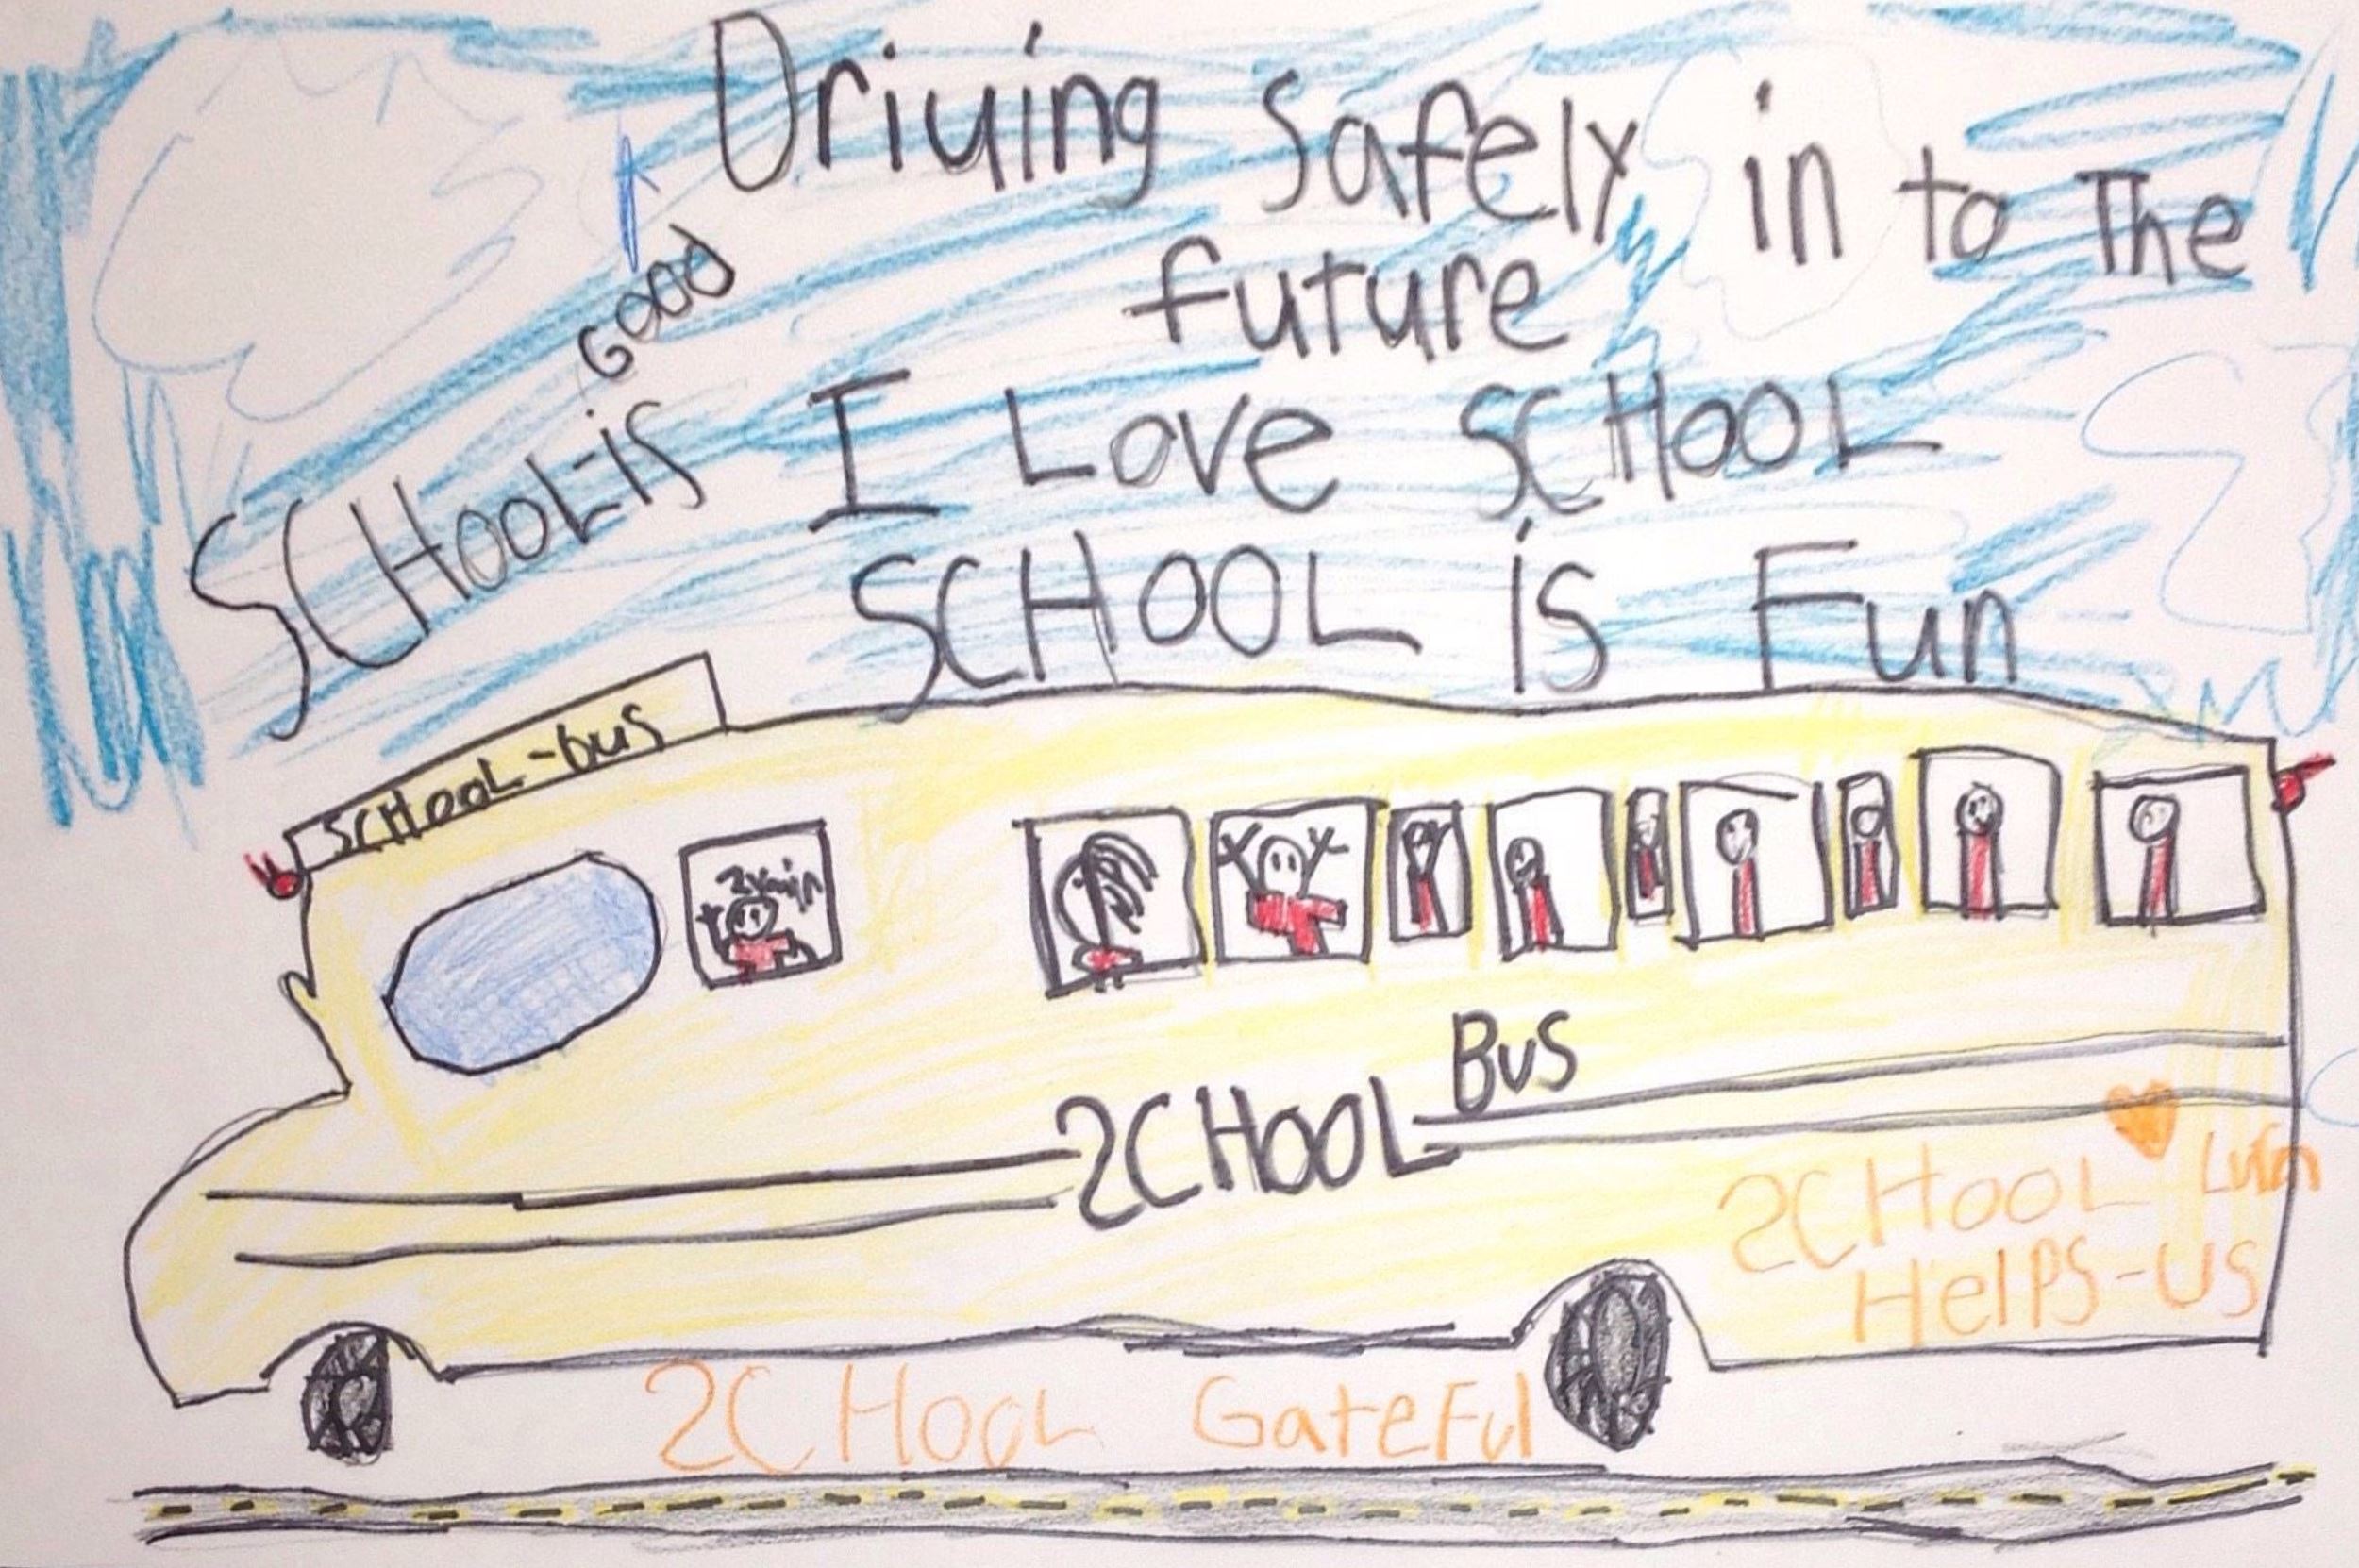 Driving safely in to The
future
GOOD
SCHOOL-is
I LOVE SCHOOL
SCHOOL is Fun
SCHOOL-bus
BUS
SCHOOL
SCHOOL
HelPS-US
SCHOOL GateFul